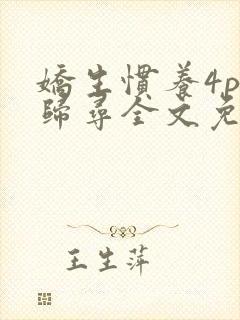 嬌生慣養4p
歸尋全文免
王生萍